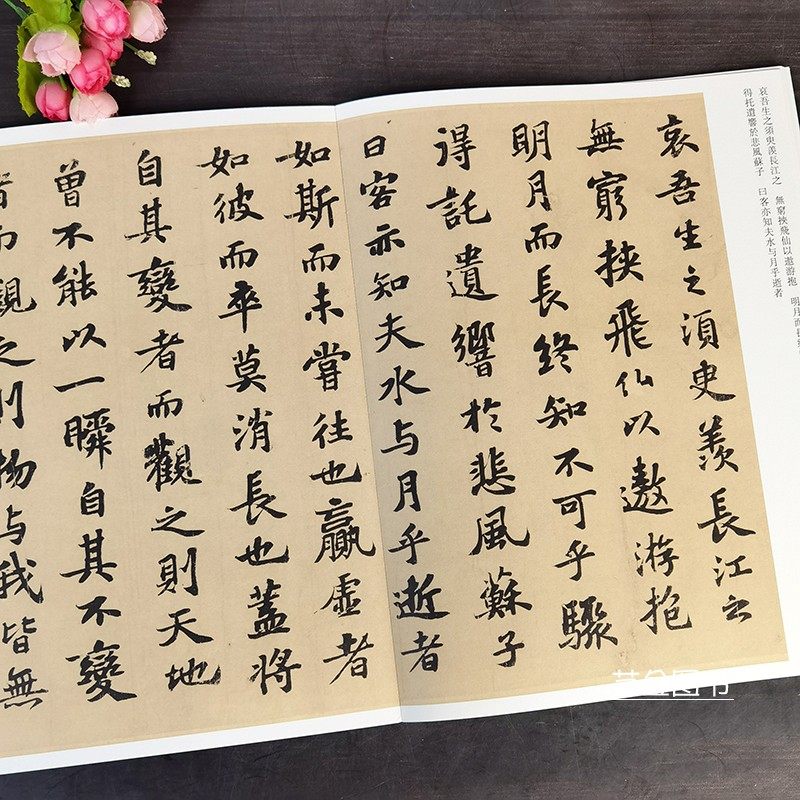 哀吾生之須臾羨長江之 無窮挾飛仙以遨游抱 明月而長
得托遺響於悲風蘇子 曰客亦知夫水与月乎逝者
哀吾生之須臾羨長江之
無窮挾飛仙以遨游抱
明月而長終知不可乎驟
得託遺響於悲風蘇子
曰客亦知夫水与月乎逝者
如斯而未嘗往也贏虛者
如彼而卒莫消長也蓋將
自其變者而觀之則天地
曾不能以一瞬自其不變
者而觀之則物与我皆無
图书